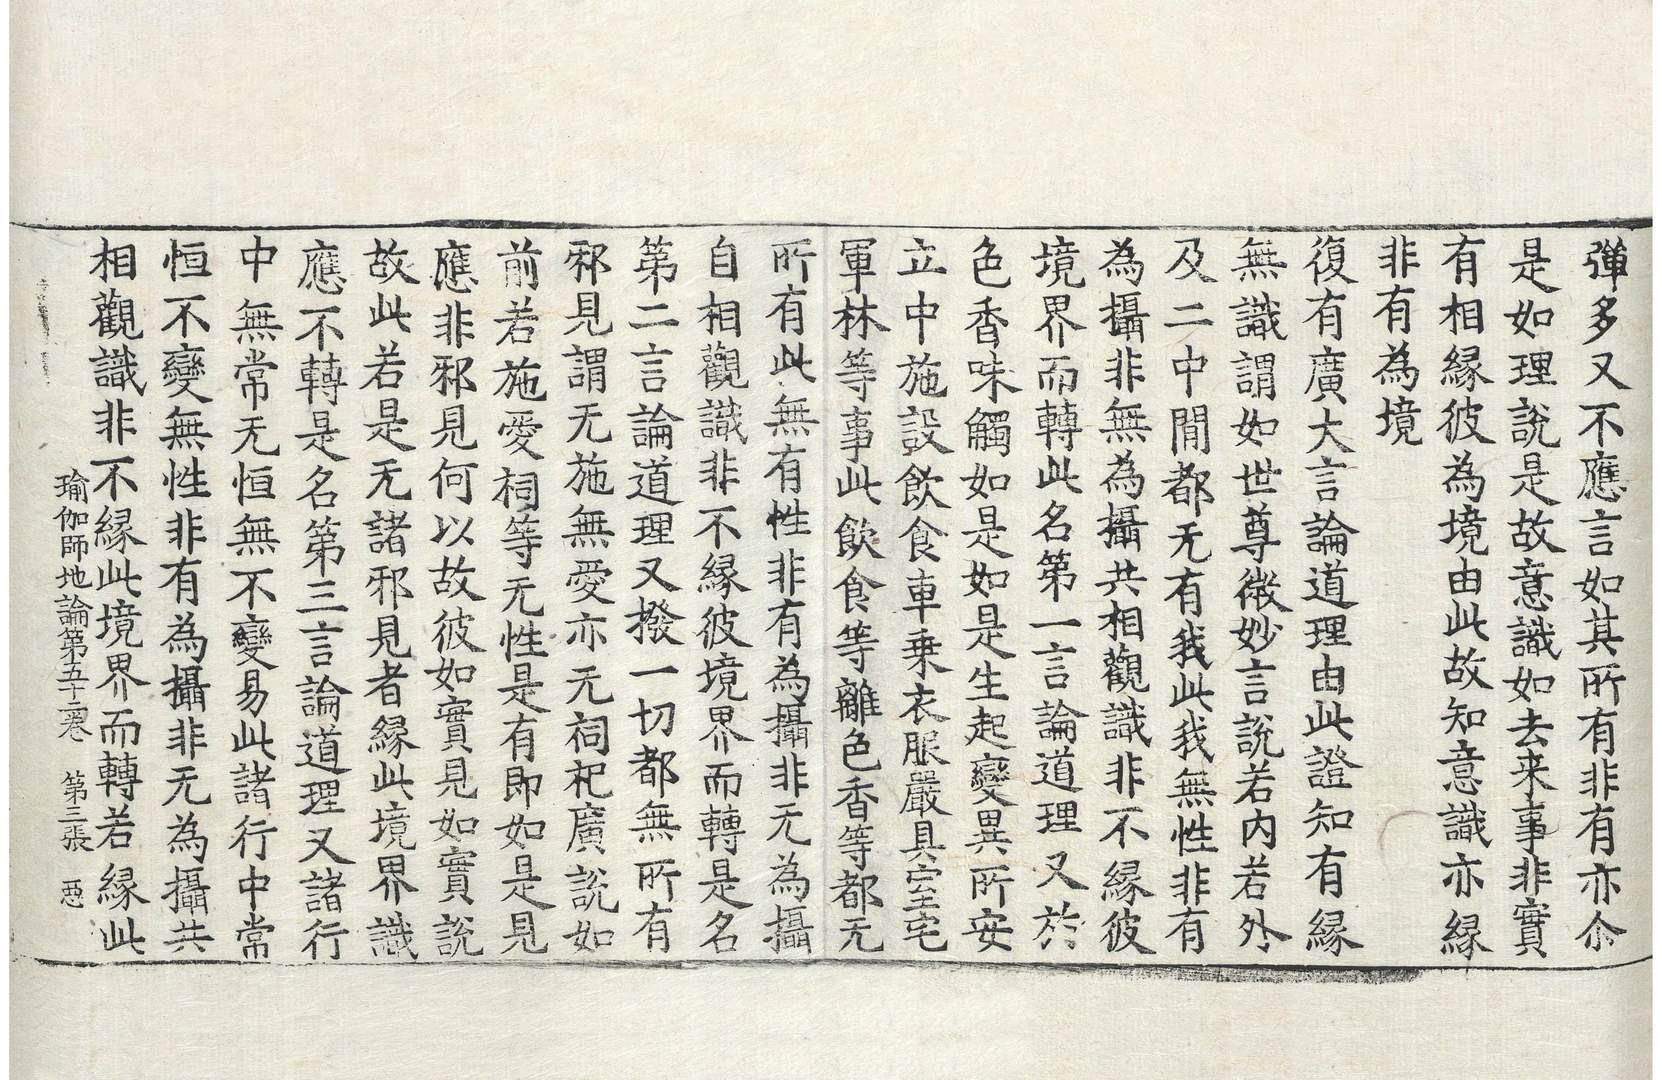 彈多又不應言如其所有非有亦尒
是如理說是故意識如去来事非實
有相緣彼為境由此故知意識亦緣
非有為境
復有廣大言論道理由此證知有緣
無識謂如世尊微妙言說若內若外
及二中閒都无有我此我無性非有
為攝非無為攝共相觀識非不緣彼
境界而轉此名第一言論道理又於
色香味觸如是如是生起變異所安
立中施設飲食車乗衣服嚴具室宅
軍林等事此飲食等離色香等都无
所有此無有性非有為攝非无為攝
自相觀識非不緣彼境界而轉是名
第二言論道理又撥一切都無所有
邪見謂无施無愛亦无祠祀廣說如
前若施愛祠等无性是有即如是見
應非邪見何以故彼如實見如實說
故此若是无諸邪見者緣此境界識
應不轉是名第三言論道理又諸行
中無常无恒無不變易此諸行中常
恒不變無性非有為攝非无為攝共
相觀識非不緣此境界而轉若緣此
瑜伽師地論第五十二卷 第三張 惡